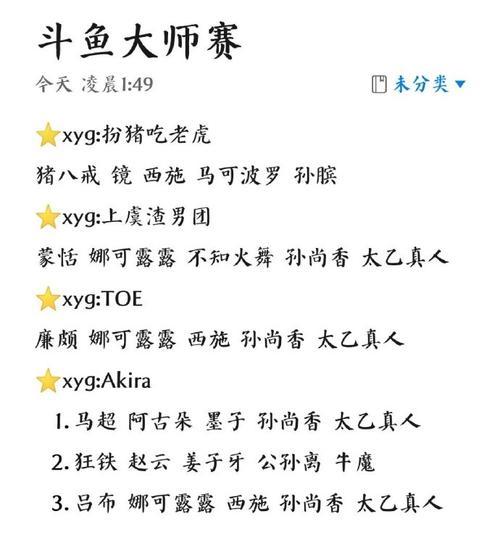 斗鱼大师赛
今天 凌晨1:49 未分类
xyg:扮猪吃老虎
猪八戒 镜 西施 马可波罗 孙膑
xyg:上虞渣男团
蒙恬 娜可露露 不知火舞 孙尚香 太乙真人
xyg:TOE
廉颇 娜可露露 西施 孙尚香 太乙真人
xyg:Akira
1. 马超 阿古朵 墨子 孙尚香 太乙真人
2. 狂铁 赵云 姜子牙 公孙离 牛魔
3. 吕布 娜可露露 西施 孙尚香 太乙真人